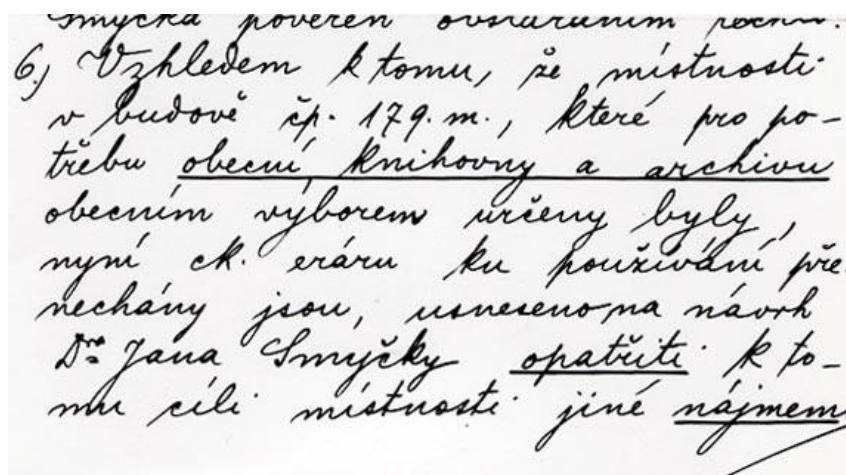 Smyčka pověřen obstaráním
6.) Vzhledem k tomu, že místnosti
v budově čp. 179. m., které pro po-
třebu obecní knihovny a archivu
obecním výborem určeny byly,
nyní ck. eráru ku používání pře-
nechány jsou, usneseno na návrh
Dra Jana Smyčky opatřiti k to-
mu cíli místnosti jiné nájmem